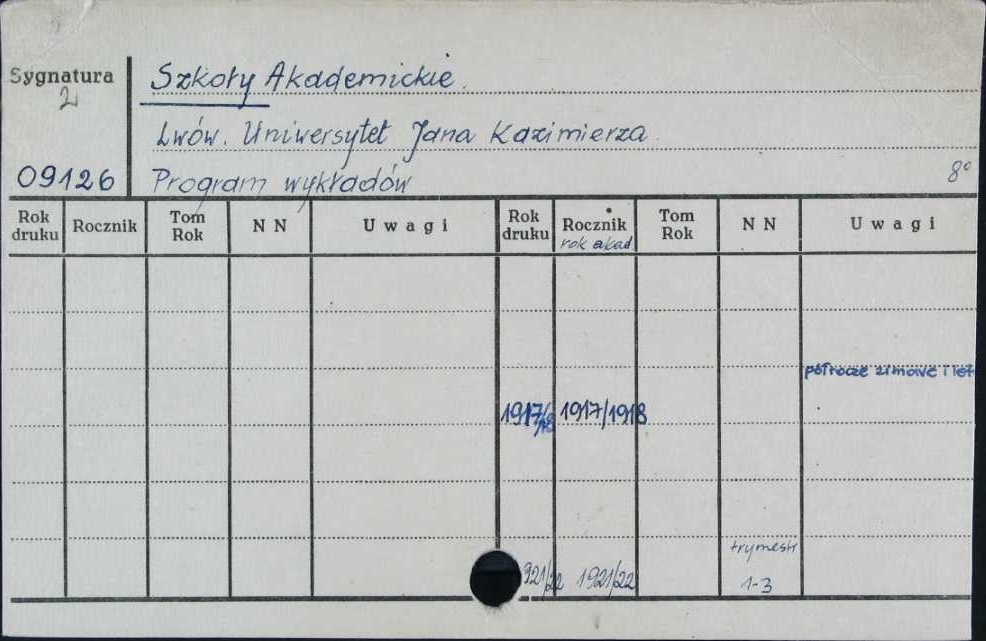 Sygnatura
2
Szkoły Akademickie.
Lwów. Uniwersytet Jana Kazimierza
09126 Program wykładów 8°
Rok druku Rocznik Tom Rok NN Uwagi Rok druku Rocznik rok akad. Tom Rok NN Uwagi
półrocze zimowe i let
1917/18 1917/1918
trymestr
921/22 1921/22 1-3